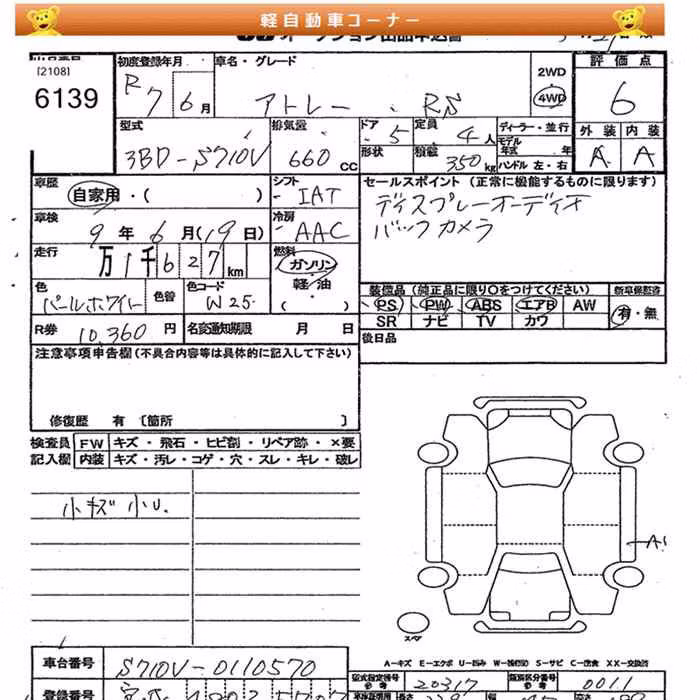 軽自動車コーナー
出品番号 初度登録年月 車名・グレード 評価点
[2108]
6139
R7 6月 アトレー . RS 2WD 4WD 6
型式 排気量 ドア 定員 ディーラー・並行 外装 内装
3BD-S710V 660cc 5 4人 モデル年式 年 A A
形状 積載 350kg ハンドル 左・右
車歴 シフト セールスポイント (正常に機能するものに限ります)
自家用・( ) IAT ディスプレーオーディオ
車検 冷房 バックカメラ
9年6月(19日) AAC
走行 燃料
万1千627km ガソリン
軽・油
( )
色 色替 色コード 装備品(純正品に限り○をつけてください) 新車保証書
パールホワイト W25 PS PW ABS エアB AW 有・無
SR ナビ TV カワ
R券 10,360円 名変通知期限 月 日 後日品
注意事項申告欄(不具合内容等は具体的に記入して下さい)
修復歴 有 〔箇所 〕
検査員 FW キズ・飛石・ヒビ割・リペア跡・×要
記入欄 内装 キズ・汚レ・コゲ・穴・スレ・キレ・破レ
小キズ 小U.
A1
スペア
A-キズ E-エクボ U-凹み W-補修跡 S-サビ C-腐食 XX-交換済
車台番号 S710V-0110570
型式指定番号 20317 類別区分番号 0011
登録番号